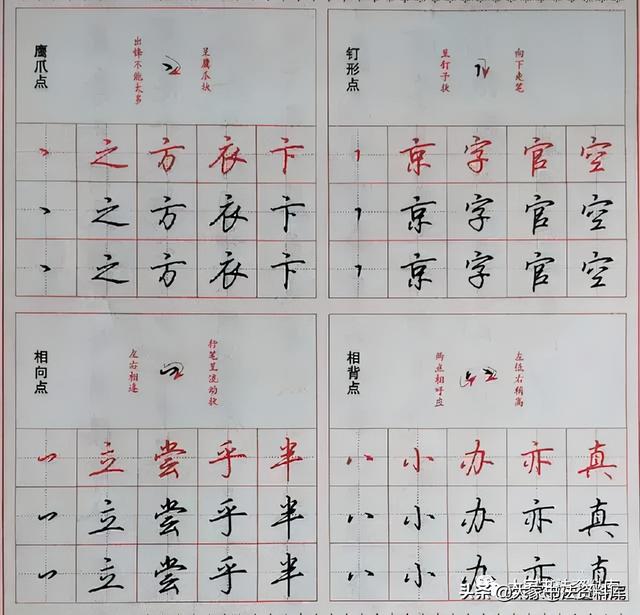 鹰爪点
出锋不能太多
呈鹰爪状
丶 之 方 衣 卞
丶 之 方 衣 卞
丶 之 方 衣 卞
钉形点
呈钉子状
向下走笔
京 字 官 空
京 字 官 空
京 字 官 空
相向点
左右相连
行笔呈流动状
立 尝 乎 半
立 尝 乎 半
立 尝 乎 半
相背点
两点相呼应
左低右稍高
小 办 亦 真
小 办 亦 真
小 办 亦 真
头条@大家书法资料库